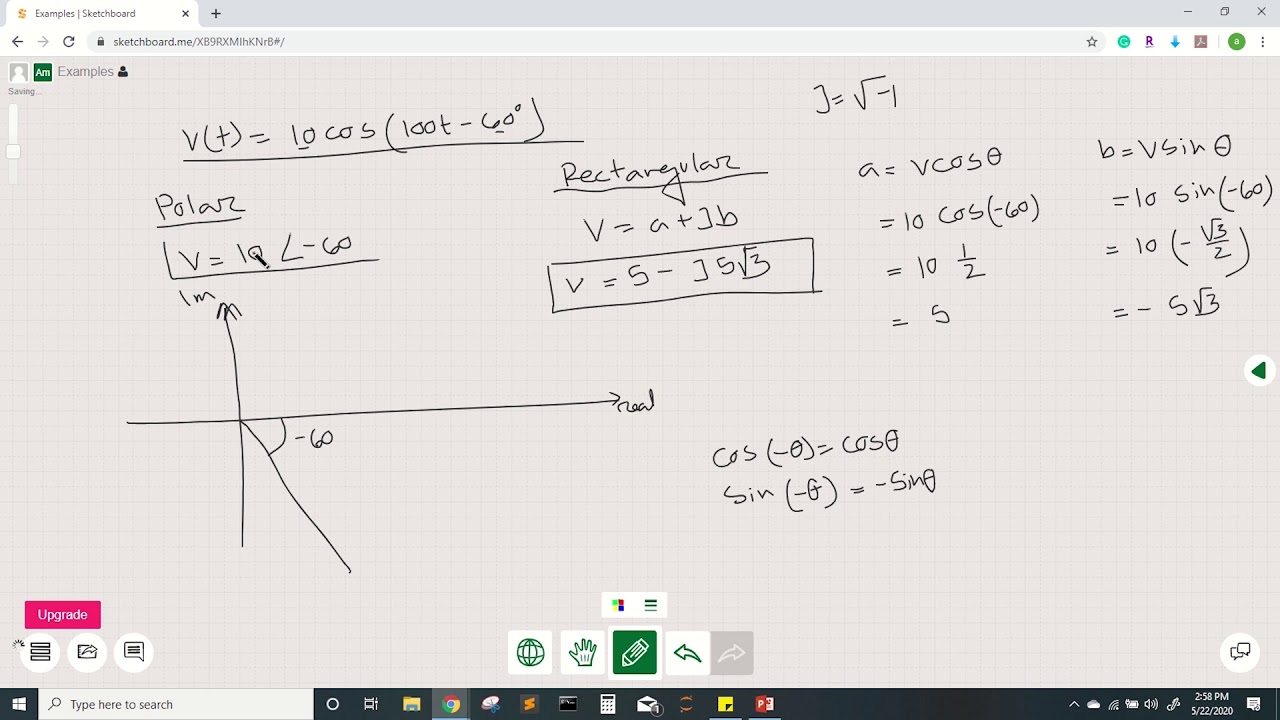 Examples | Sketchboard
sketchboard.me/XB9RXMIhKNrB#/
a
Am Examples
Saving...
V(t) = 10 cos (100t - 60°)
J = √-1
Polar
V = 10 ∠-60
Rectangular
V = a + Jb
V = 5 - J 5√3
a = V cos θ
= 10 cos(-60)
= 10 1/2
= 5
b = V sin θ
= 10 sin(-60)
= 10 (- √3/2)
= - 5√3
Im
real
-60
cos (-θ) = cos θ
sin (-θ) = - sin θ
Upgrade
Type here to search
1
2:58 PM
5/22/2020